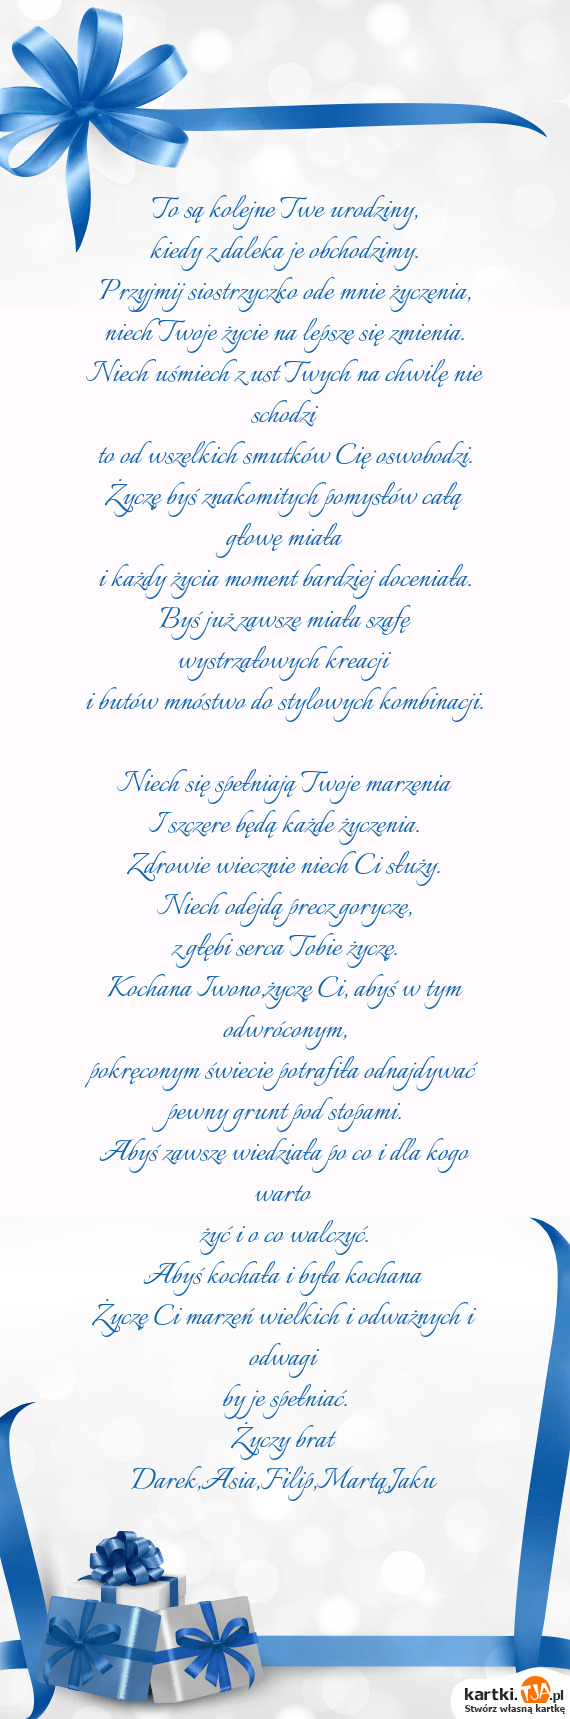 To są kolejne Twe urodziny,
kiedy z daleka je obchodzimy.
Przyjmij siostrzyczko ode mnie życzenia,
niech Twoje życie na lepsze się zmienia.
Niech uśmiech z ust Twych na chwilę nie
schodzi
to od wszelkich smutków Cię oswobodzi.
Życzę byś znakomitych pomysłów całą
głowę miała
i każdy życia moment bardziej doceniała.
Byś już zawsze miała szafę
wystrzałowych kreacji
i butów mnóstwo do stylowych kombinacji.
Niech się spełniają Twoje marzenia
I szczere będą każde życzenia.
Zdrowie wiecznie niech Ci służy.
Niech odejdą precz gorycze,
z głębi serca Tobie życzę.
Kochana Iwono,życzę Ci, abyś w tym
odwróconym,
pokręconym świecie potrafiła odnajdywać
pewny grunt pod stopami.
Abyś zawsze wiedziała po co i dla kogo
warto
żyć i o co walczyć.
Abyś kochała i była kochana
Życzę Ci marzeń wielkich i odważnych i
odwagi
by je spełniać.
Życzy brat
Darek,Asia,Filip,Martą,Jaku
kartki.TJA.pl
Stwórz własną kartkę